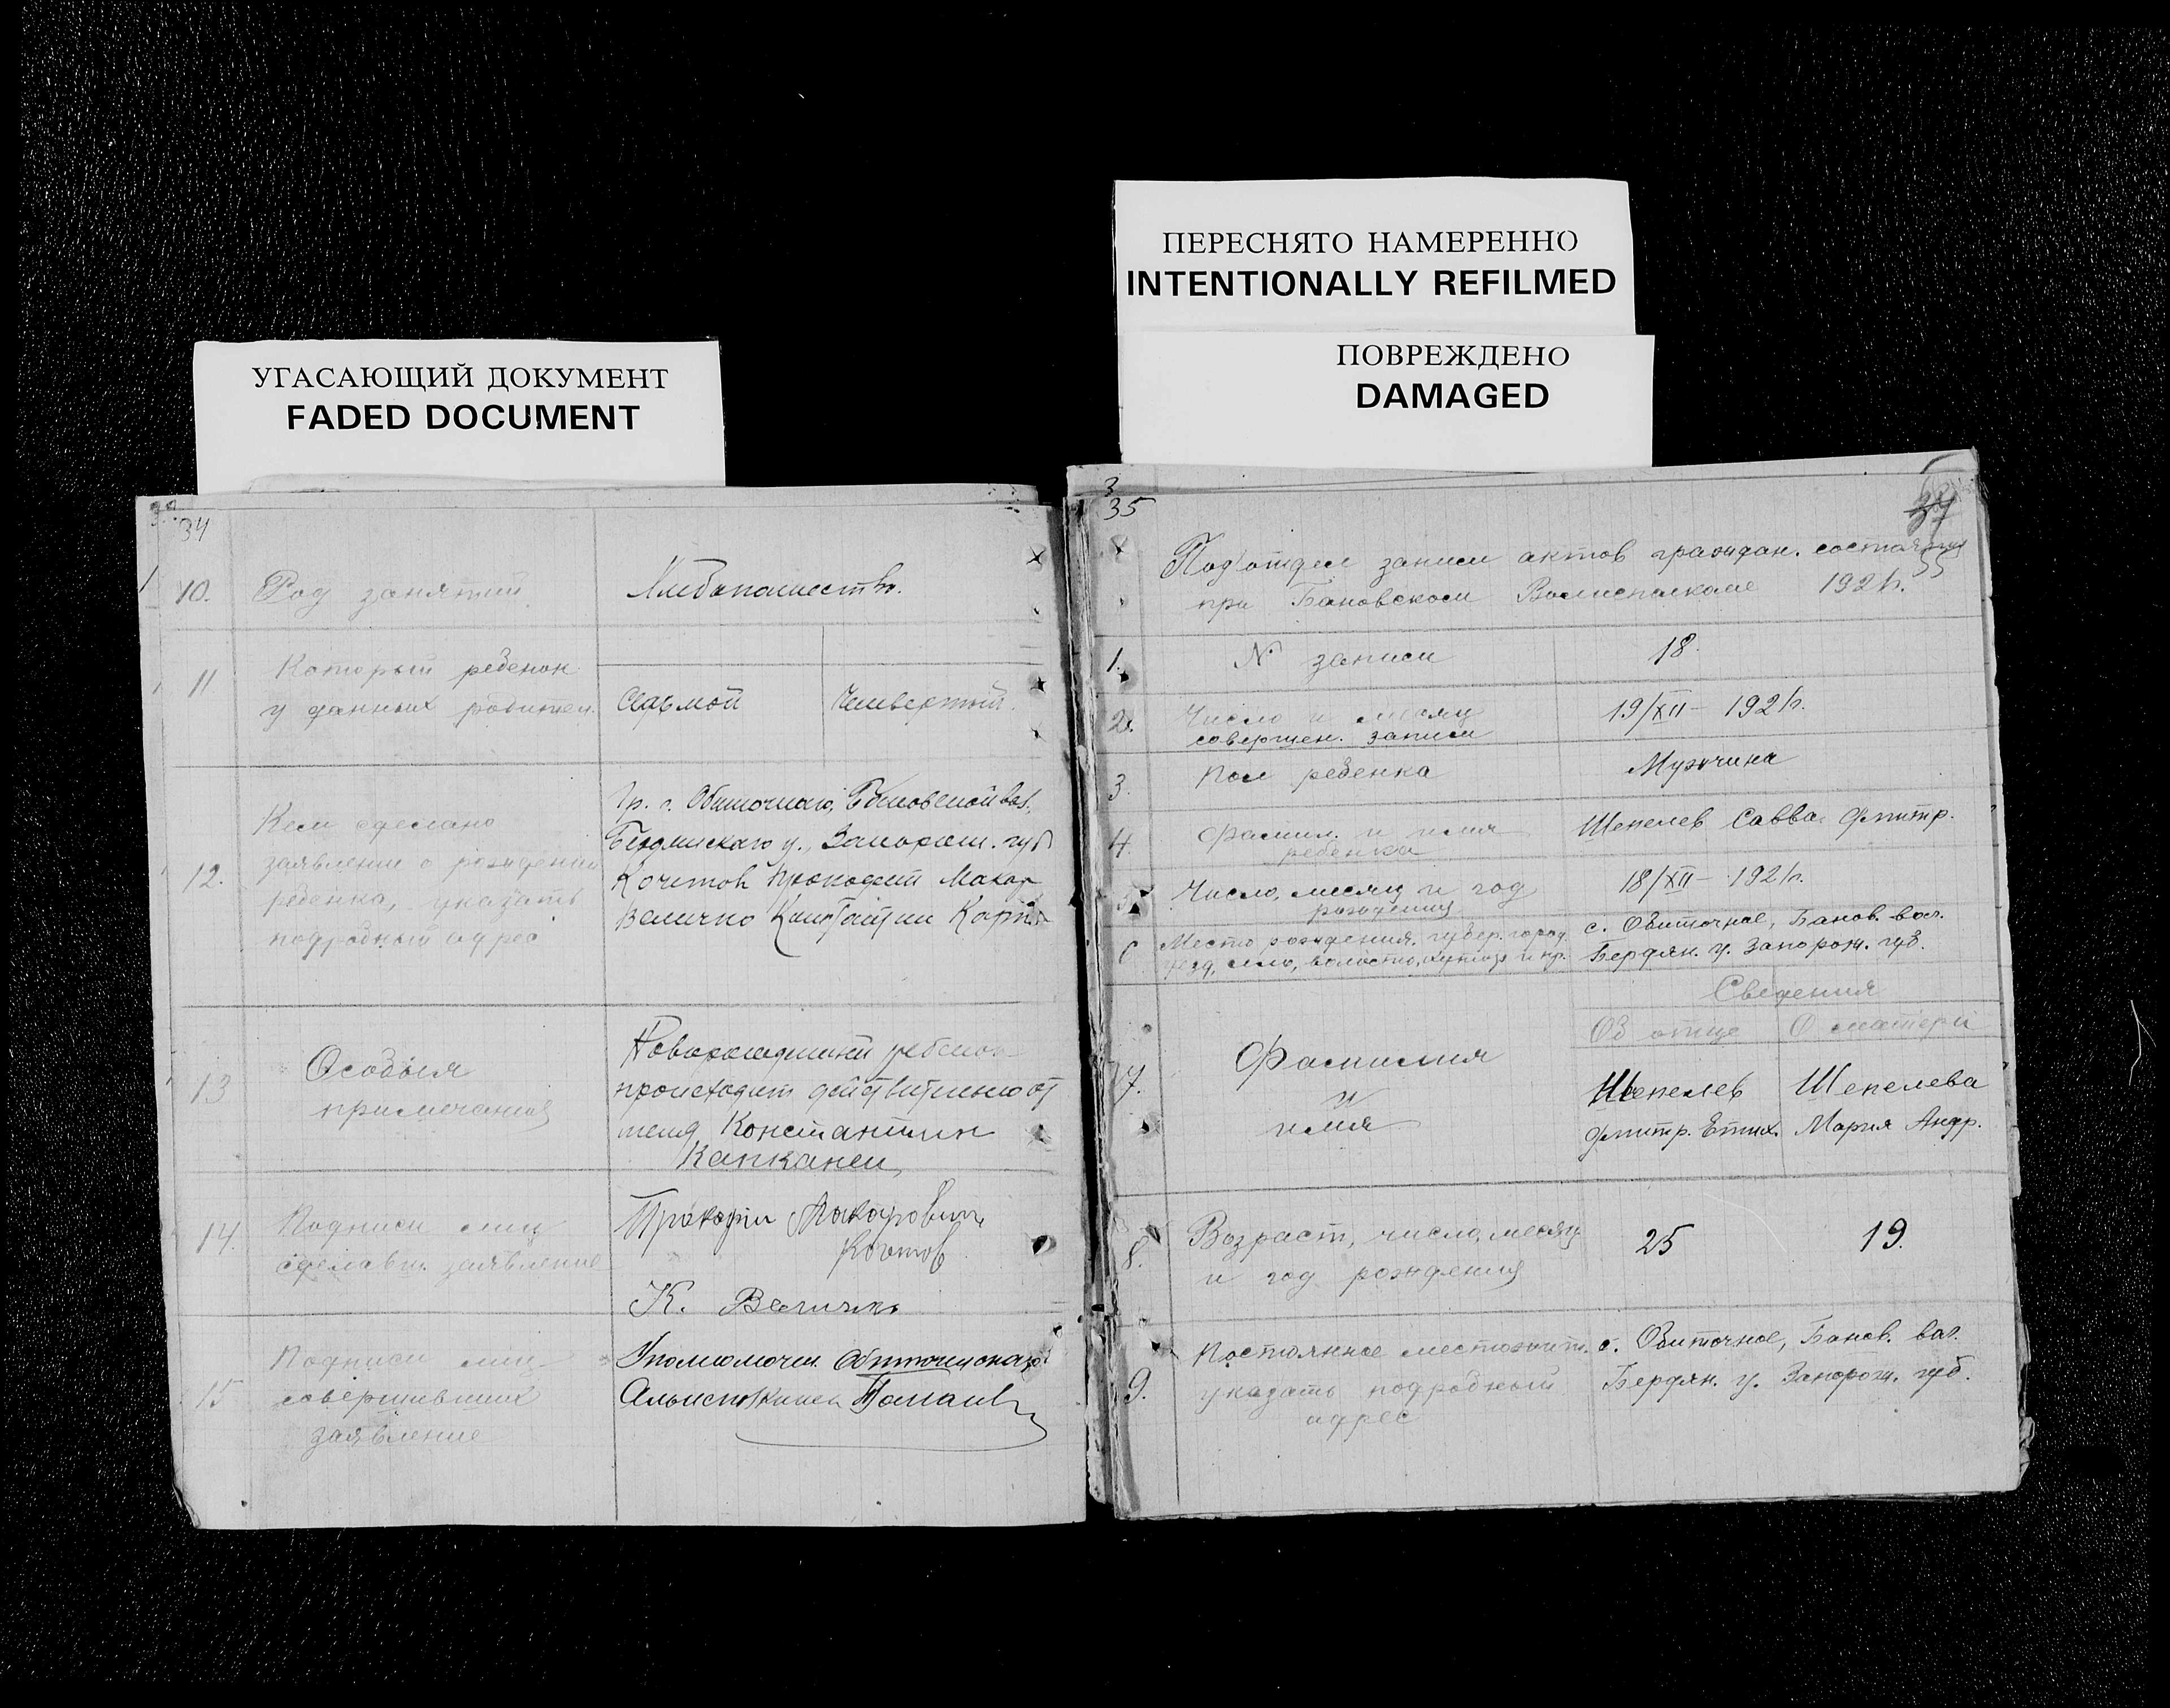 УГАСАЮЩИЙ ДОКУМЕНТ
FADED DOCUMENT
34
10. Род занятий Хлебопашество.
11 Который ребенок
у данных родител. Седьмой Четвертый.
Гр. с. Обиточнаго, Бановской вол.
Кем сделано Бердянскаго у., Запорож. губ
12. заявление о рождении Кочетов Прокофий Макар
ребенка, указать Величко Константин
подробный адрес
13 Особыя Новорожденный ребенок
примечания происходит действительно от
меня Константин
14. Подписи лиц Прокофий Макарович
сделавш. заявление Кочетов
К. Величко
15 Подписи лиц
совершивших
заявление
ПЕРЕСНЯТО НАМЕРЕННО
INTENTIONALLY REFILMED
ПОВРЕЖДЕНО
DAMAGED
3
35
34
Подотдел записи актов граждан. состояния
при Бановском Волисполкоме 1921г.
1. № записи 18.
2. Число и месяц 19/XII - 1921г.
совершен. записи
3. Пол ребенка Мужчина
4. Фамил. и имя Шепелев Савва Дмитр.
ребенка
5 Число, месяц и год 18/XII - 1921г.
рождения
6 Место рождения, губер. город с. Обиточное, Банов. вол.
уезд, село, волость, и пр. Бердян. у. Запорож. губ.
Сведения
Об отце О матери
7. Фамилия Шепелев Шепелева
и
имя Дмитр. Мария Андр.
8. Возраст, число, месяц 25 19.
и год рождения
9. Постоянное местожит. с. Обиточное, Банов. вол.
указать подробный Бердян. у. Запорож. губ.
адрес